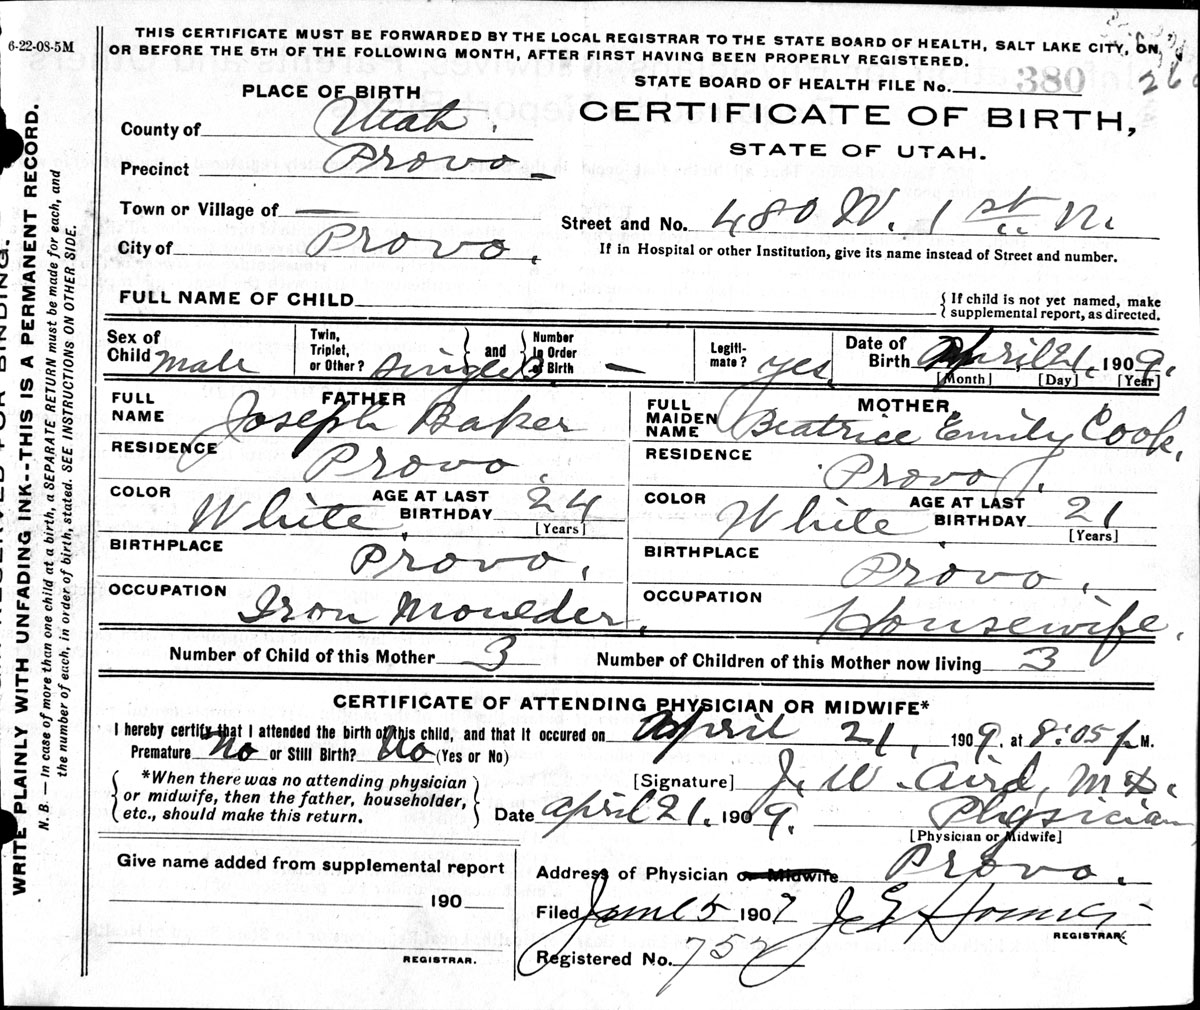 6-22-08-5M
THIS CERTIFICATE MUST BE FORWARDED BY THE LOCAL REGISTRAR TO THE STATE BOARD OF HEALTH, SALT LAKE CITY, ON,
OR BEFORE THE 5TH OF THE FOLLOWING MONTH, AFTER FIRST HAVING BEEN PROPERLY REGISTERED.
STATE BOARD OF HEALTH FILE No. 380
PLACE OF BIRTH
CERTIFICATE OF BIRTH,
STATE OF UTAH.
County of Utah.
Precinct Provo
Town or Village of —
Street and No. 480 W. 1st N.
City of Provo.
If in Hospital or other Institution, give its name instead of Street and number.
FULL NAME OF CHILD
{If child is not yet named, make
supplemental report, as directed.
Sex of Child Male
Twin, Triplet, or Other? Single
and Number in Order of Birth —
Legiti- mate? yes
Date of Birth April 21. 1909.
[Month] [Day] [Year]
FATHER
FULL NAME Joseph Baker
MOTHER
FULL MAIDEN NAME Beatrice Emily Cook.
RESIDENCE Provo.
RESIDENCE Provo.
COLOR White AGE AT LAST BIRTHDAY 24 [Years]
COLOR White AGE AT LAST BIRTHDAY 21 [Years]
BIRTHPLACE Provo.
BIRTHPLACE Provo.
OCCUPATION Iron Moulder.
OCCUPATION Housewife.
Number of Child of this Mother 3 Number of Children of this Mother now living 3
CERTIFICATE OF ATTENDING PHYSICIAN OR MIDWIFE*
I hereby certify that I attended the birth of this child, and that it occured on April 21, 1909. at 8:05 p M.
Premature No or Still Birth? No (Yes or No)
*When there was no attending physician
or midwife, then the father, householder,
etc., should make this return.
[Signature] J. W. Aird, M.D.
Date April 21. 1909. Physician
[Physician or Midwife]
Give name added from supplemental report
190
REGISTRAR.
Address of Physician or Midwife Provo.
Filed June 5 1909
REGISTRAR
Registered No. 752
RESERVED FOR BINDING.
WRITE PLAINLY WITH UNFADING INK--THIS IS A PERMANENT RECORD.
N. B. — In case of more than one child at a birth, a SEPARATE RETURN must be made for each, and
the number of each, in order of birth, stated. SEE INSTRUCTIONS ON OTHER SIDE.